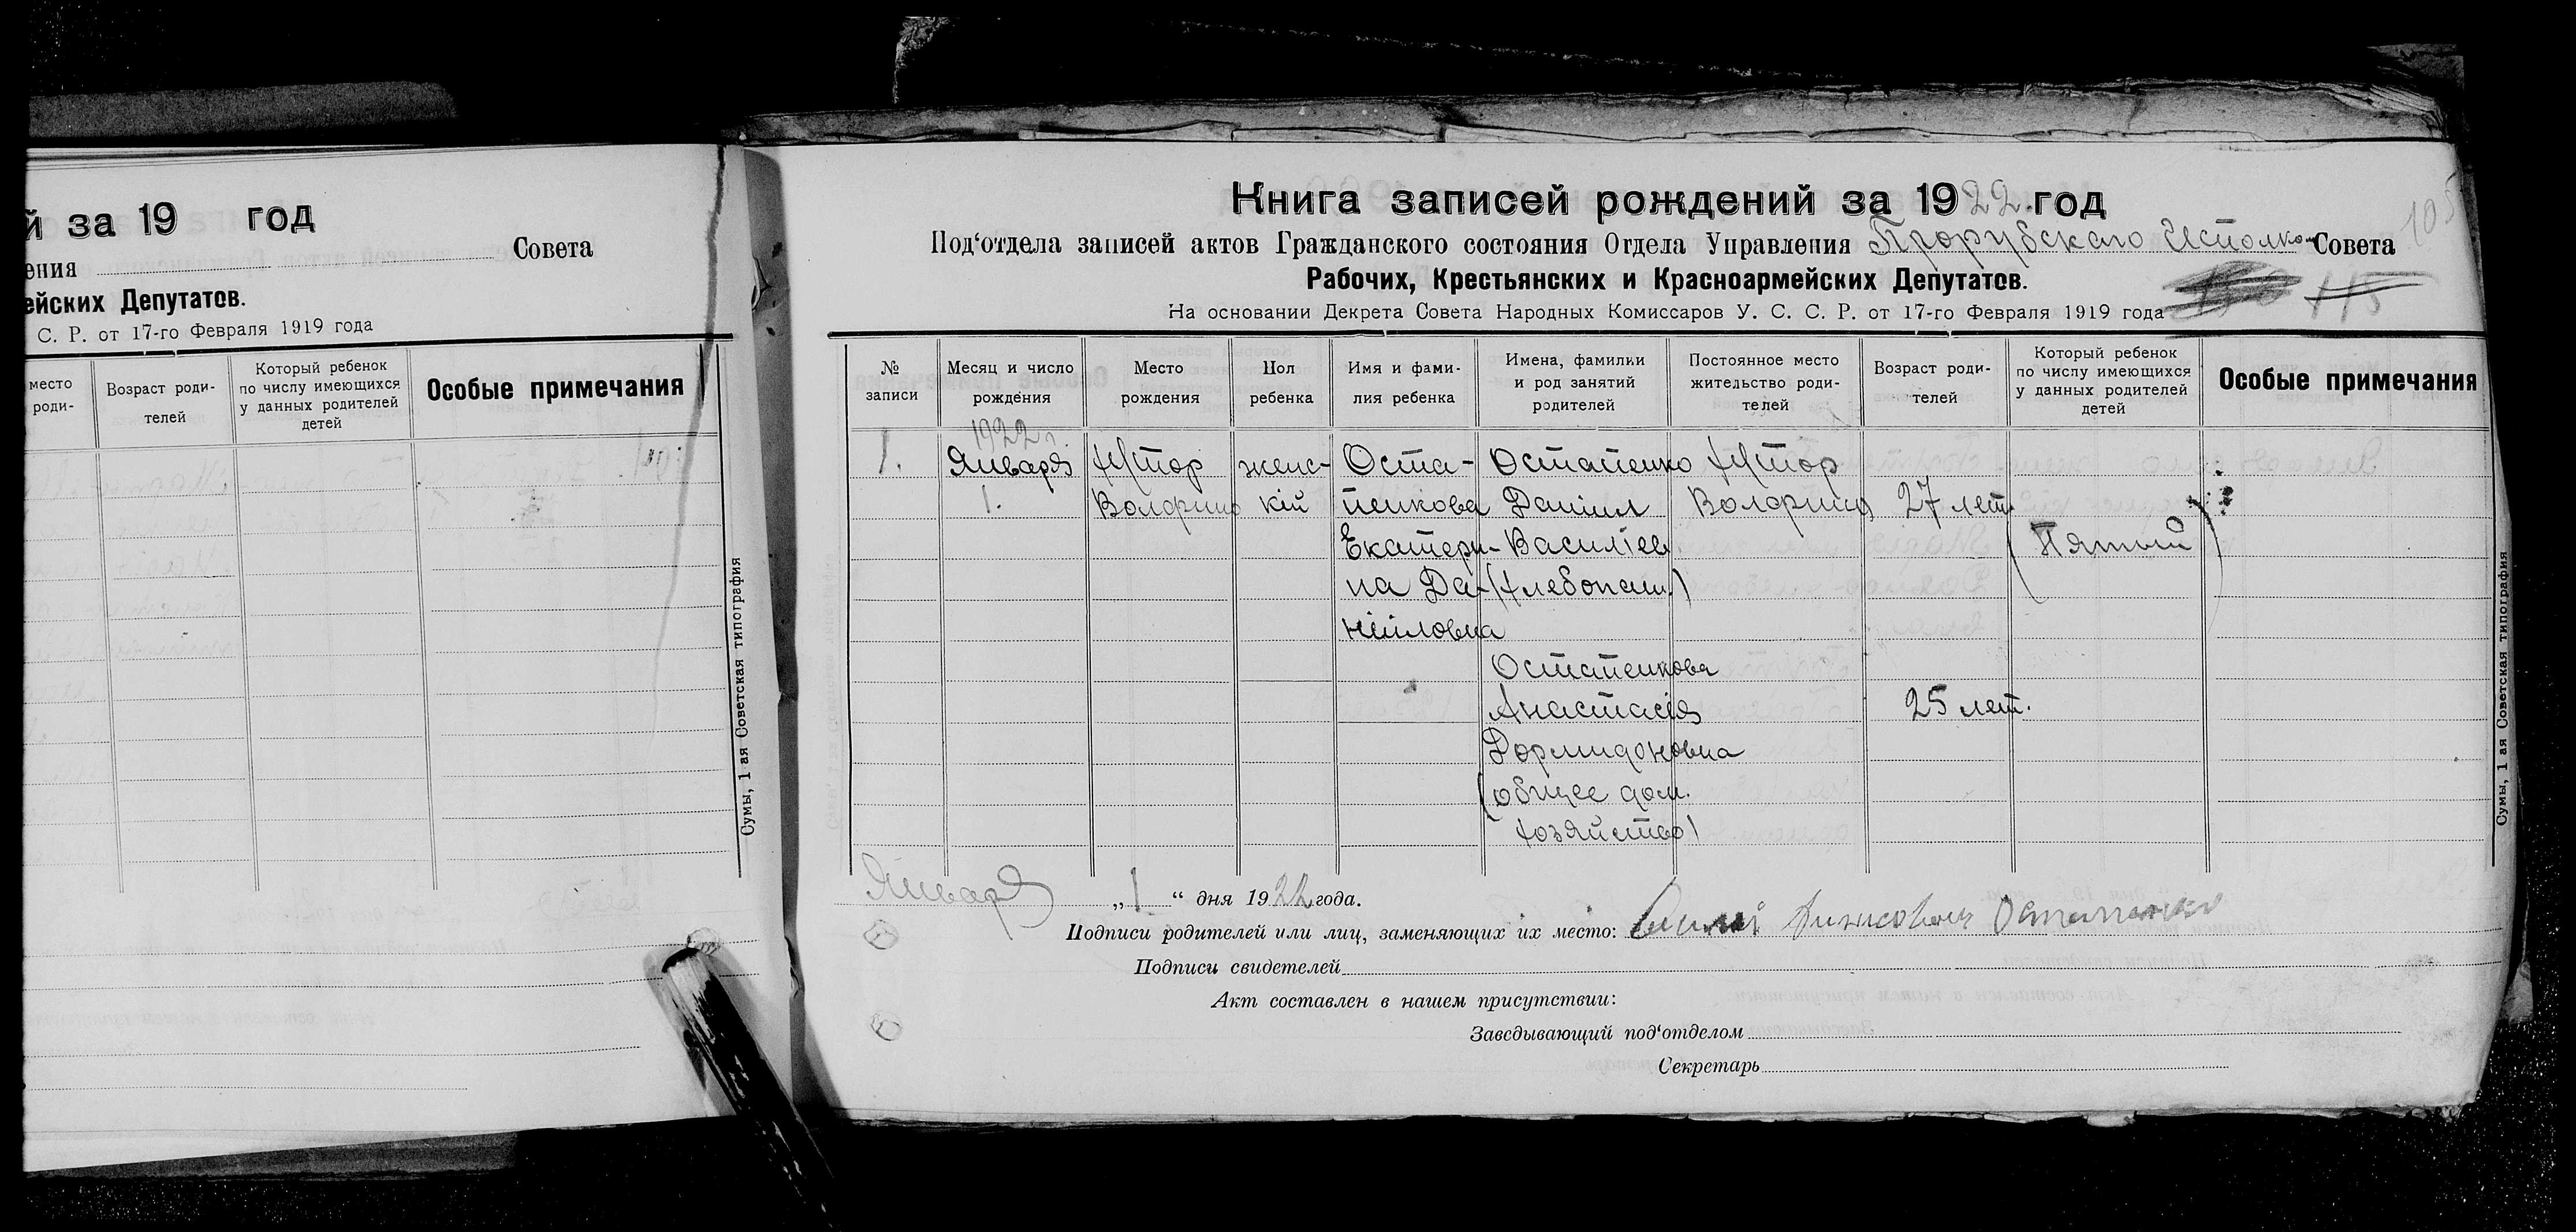 й за 19 год
ения Совета
ейских Депутатов.
С. Р. от 17-го Февраля 1919 года
место роди-
Возраст роди-
телей
Который ребенок
по числу имеющихся
у данных родителей
детей
Особые примечания
Сумы, 1 ая Советская типография
Книга записей рождений за 1922 год
Под‘отдела записей актов Гражданского состояния Отдела Управления Прорубскаго Исполком Совета
105
Рабочих, Крестьянских и Красноармейских Депутатов.
115
На основании Декрета Совета Народных Комиссаров У. С. С. Р. от 17-го Февраля 1919 года
№
записи
Месяц и число
рождения
Место
рождения
Пол
ребенка
Имя и фами-
лия ребенка
Имена, фамилии
и род занятий
родителей
Постоянное место
жительство роди-
телей
Возраст роди-
телей
Который ребенок
по числу имеющихся
у данных родителей
детей
Особые примечания
1922 г.
1. Января Хутор женс- Оста- Остапенко Хутор
1. кій пенкова Даниил 27 лет
Екатери- Василіев (Пятый)
на Да- (хлебопаш.)
ніиловна
Остапенкова
Анастасія 25 лет.
Дормидоновна
(общее дом.
хозяйство)
Января „1“ дня 1922 года.
Подписи родителей или лиц, заменяющих их место: Остапенко
Подписи свидетелей
Акт составлен в нашем присутствии:
Заведывающий под‘отделом
Секретарь
Сумы, 1 ая Советская типография